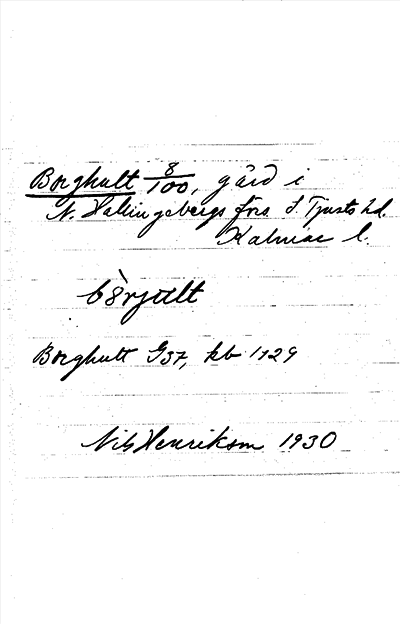 Borghult 8/100, gård i
N. Hallingebergs frs S. Tjusts hd.
Kalmar l.
Borghult G37, kb 1729
Nils Henrikson 1930